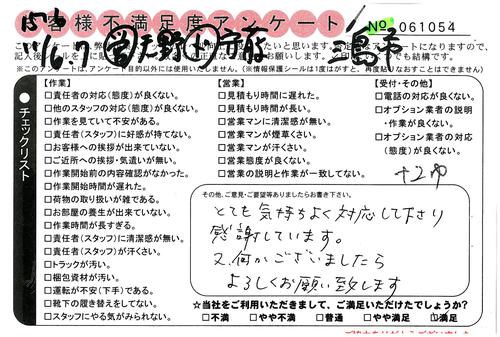 お客様不満足度アンケート
No 061054
三島市
(※このアンケートは、アンケート目的以外には使用いたしません。)(※情報保護シールは1度はがすと、再度貼りなおすことはできません)
チェックリスト
【作業】
□責任者の対応(態度)が良くない。
□他のスタッフの対応(態度)が良くない。
□作業を見ていて不安がある。
□責任者(スタッフ)に好感が持てない。
□お客様への挨拶が出来ていない。
□ご近所への挨拶・気遣いが無い。
□作業開始前の内容確認がなかった。
□作業開始時間が遅れた。
□荷物の取り扱いが雑である。
□お部屋の養生が出来ていない。
□作業時間が長すぎる。
□責任者(スタッフ)に清潔感が無い。
□責任者(スタッフ)が汗くさい。
□トラックが汚い。
□梱包資材が汚い。
□運転が不安(下手)である。
□靴下の履き替えをしてない。
□スタッフにやる気がみられない。
【営業】
□見積もり時間に遅れた。
□見積もり時間が長い。
□営業マンに清潔感が無い。
□営業マンが煙草くさい。
□営業マンが汗くさい。
□営業態度が良くない。
□営業の説明と作業が一致してない。
【受付・その他】
□電話の対応が良くない。
□オプション業者の説明
・作業が良くない。
□オプション業者の対応
(態度)が良くない。
その他、ご意見・ご要望等ありましたらお書き下さい。
とても気持ちよく対応して下さり
感謝しています。
又、何かございましたら
よろしくお願い致します
☆当社をご利用いただきまして、ご満足いただけたでしょうか?
□不満 □やや不満 □普通 □やや満足 ☑満足